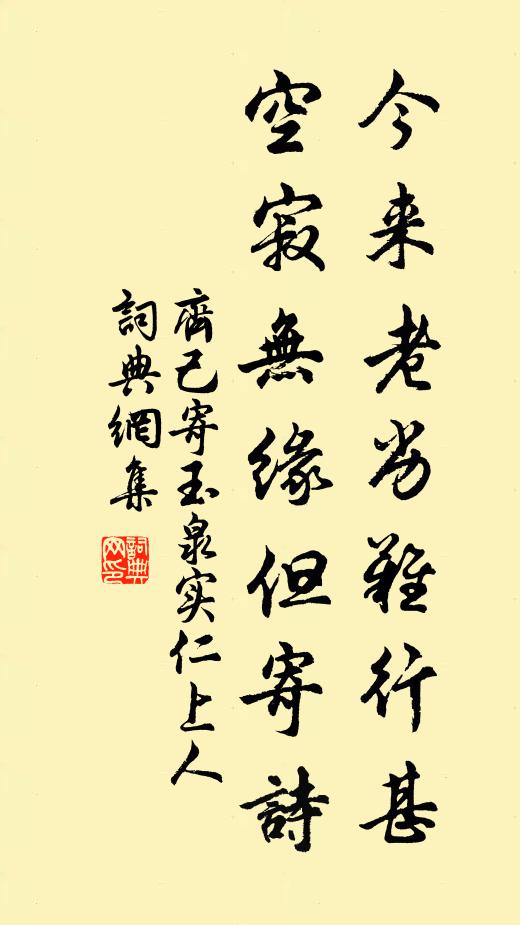 今来老劣難行甚
空寂無緣但寄詩
齊己寄玉泉实仁上人
詞典網集
詞典網印